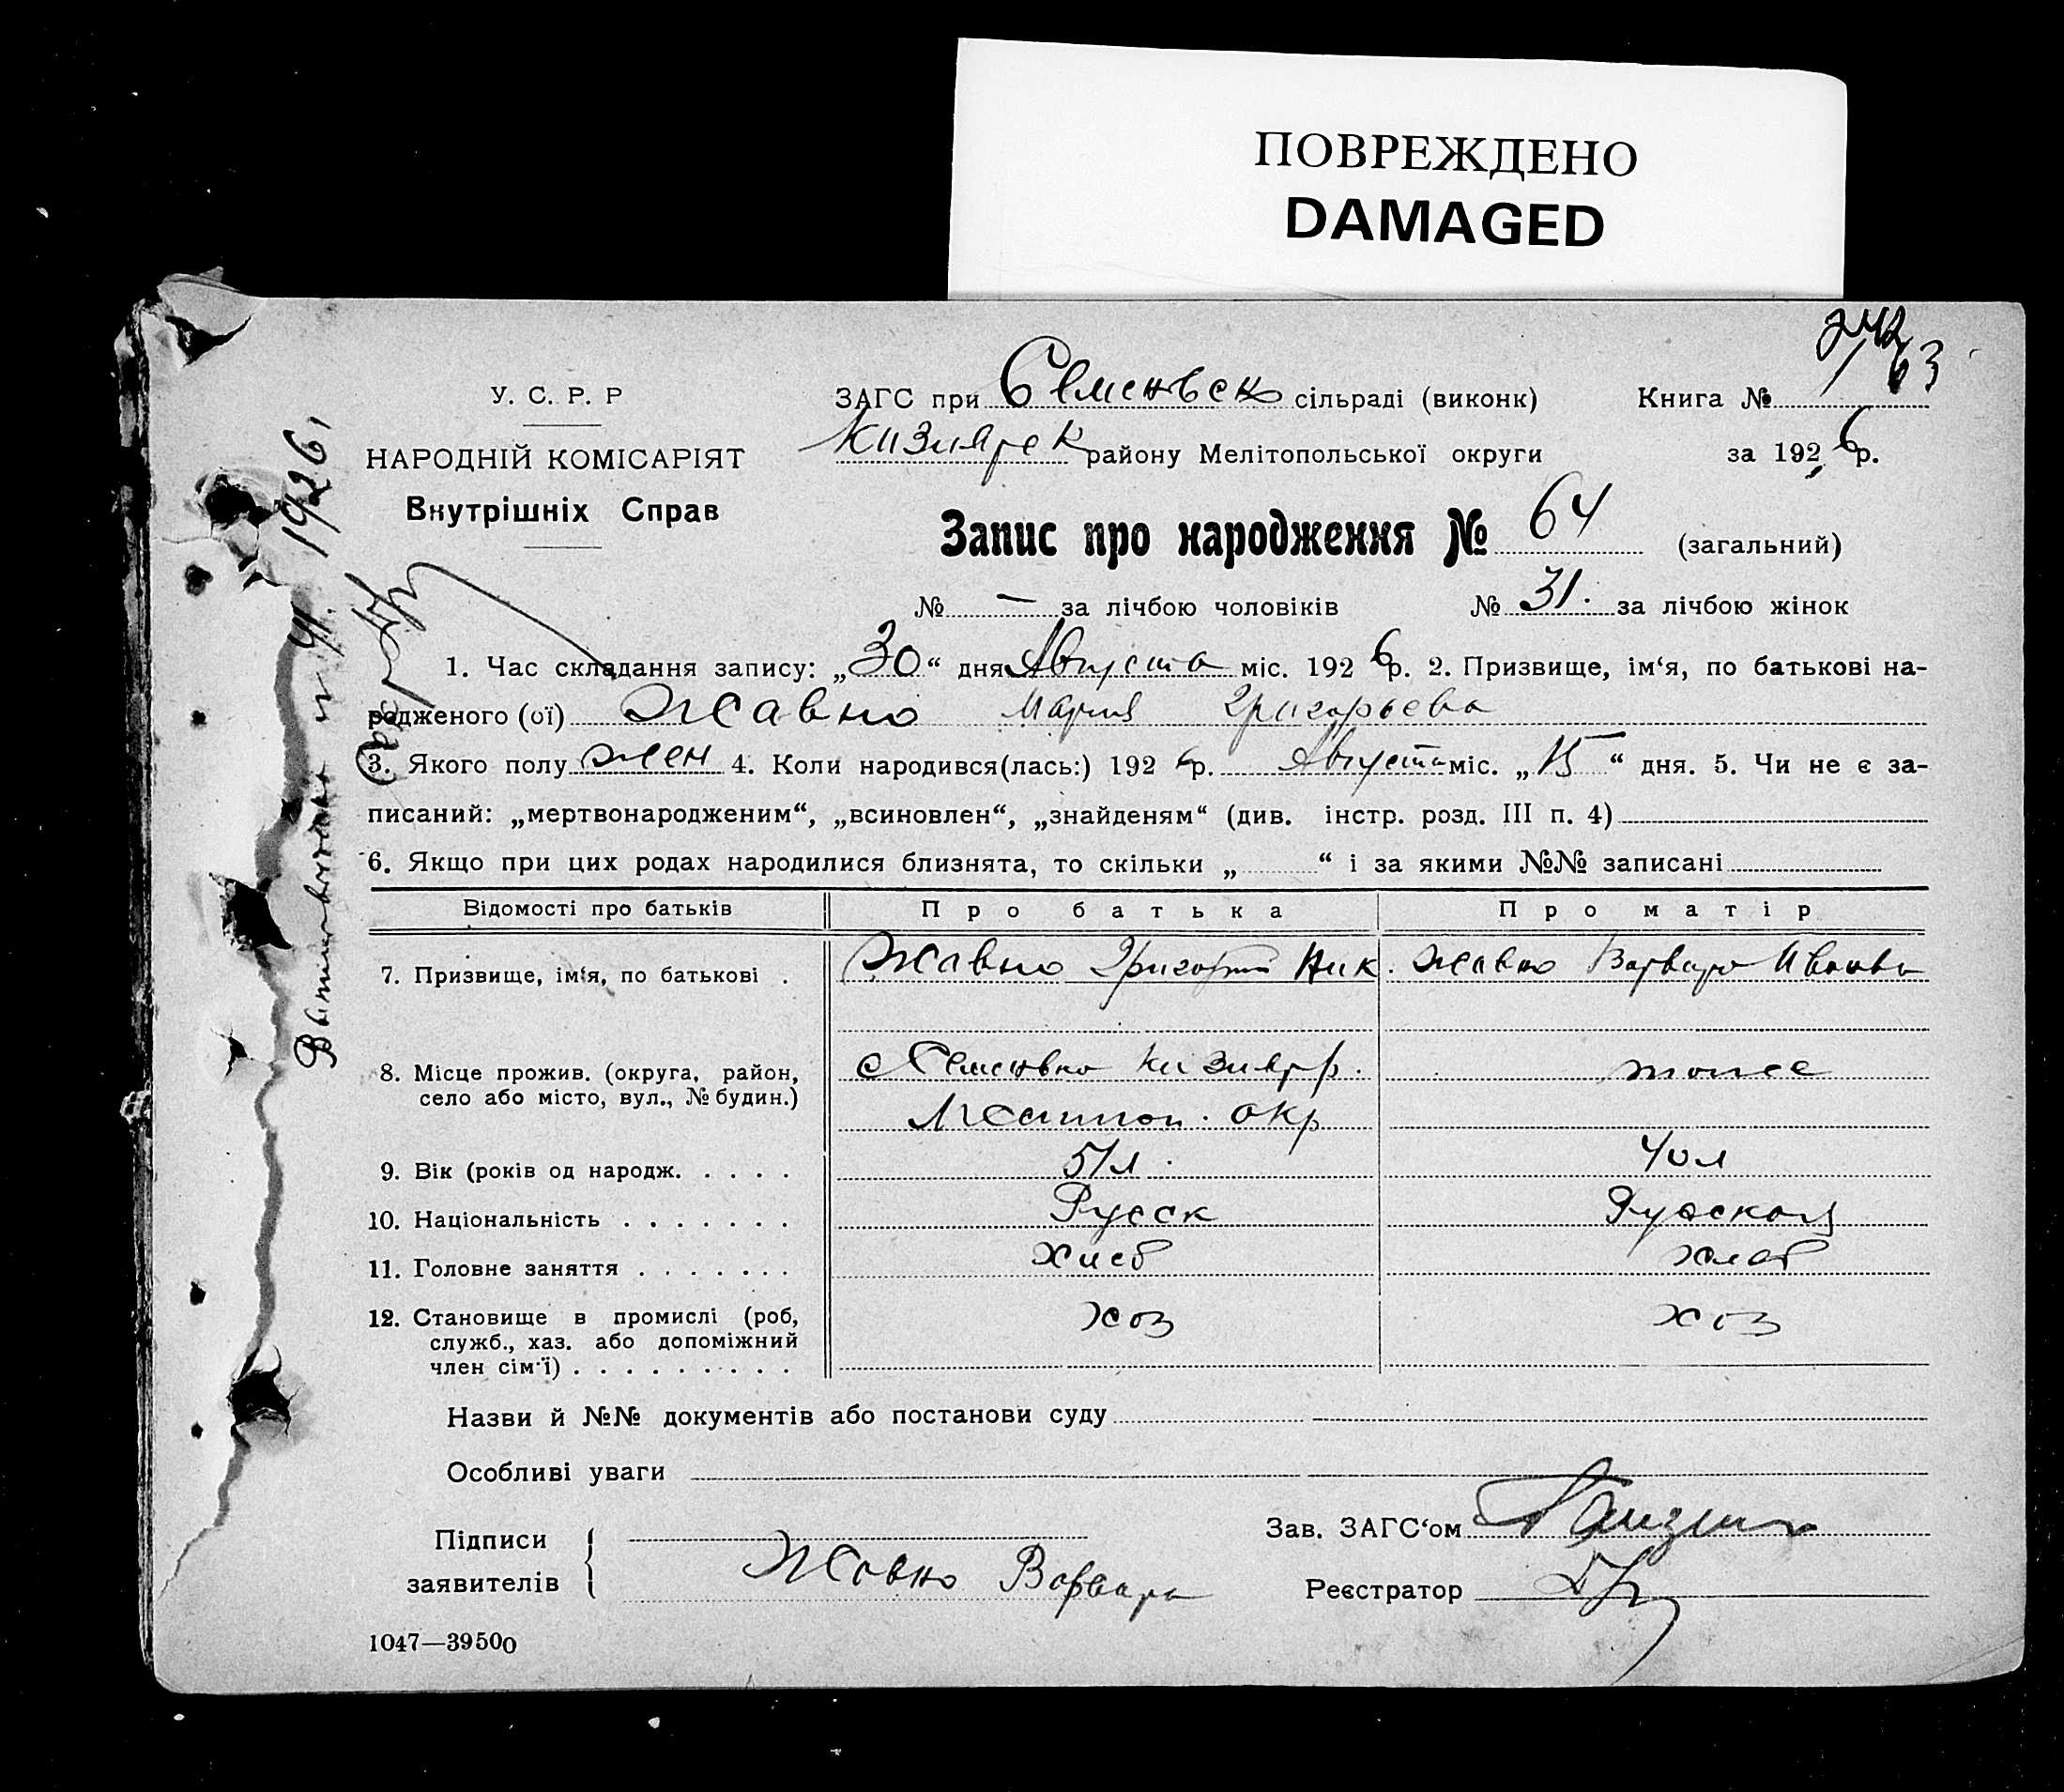 ПОВРЕЖДЕНО
DAMAGED
У. С. Р. Р
НАРОДНІЙ КОМІСАРІЯТ
Внутрішніх Справ
ЗАГС при Семеньвск сільраді (виконк)
Книга № 1
63
Кизиярск району Мелітопольської округи
за 1926 р.
Запис про народження № 64 (загальний)
№ — за лічбою чоловіків № 31. за лічбою жінок
1. Час складання запису: „30“ дня Августа міс. 1926 р. 2. Призвище, ім‘я, по батькові на-
родженого (ої) Жавно Мария Григорьева
3. Якого полу жен 4. Коли народився(лась:) 1926 р. Августа міс. „15“ дня. 5. Чи не є за-
писаний: „мертвонародженим“, „всиновлен“, „знайденям“ (див. інстр. розд. III п. 4)
6. Якщо при цих родах народилися близнята, то скільки „ “ і за якими №№ записані
Відомості про батьків Про батька Про матір
7. Призвище, ім‘я, по батькові . Жавно Григорий Ник. Жавно Варвара Иванова
8. Місце прожив. (округа, район, село або місто, вул., № будин.) Семеньвка Кизияр р. тоже
Мелитоп. окр
9. Вік (років од народж. . . . . 51 л. 40 л
10. Національність . . . . . . . Русск Русская
11. Головне заняття . . . . . . . Хлеб хлеб
12. Становище в промислі (роб, служб., хаз. або допоміжний член сім‘ї) . . . . . . . . . хоз хоз
Назви й №№ документів або постанови суду
Особливі уваги
Підписи заявителів { Жавно Варвара
Зав. ЗАГС‘ом
Реєстратор
1047—39500
1926